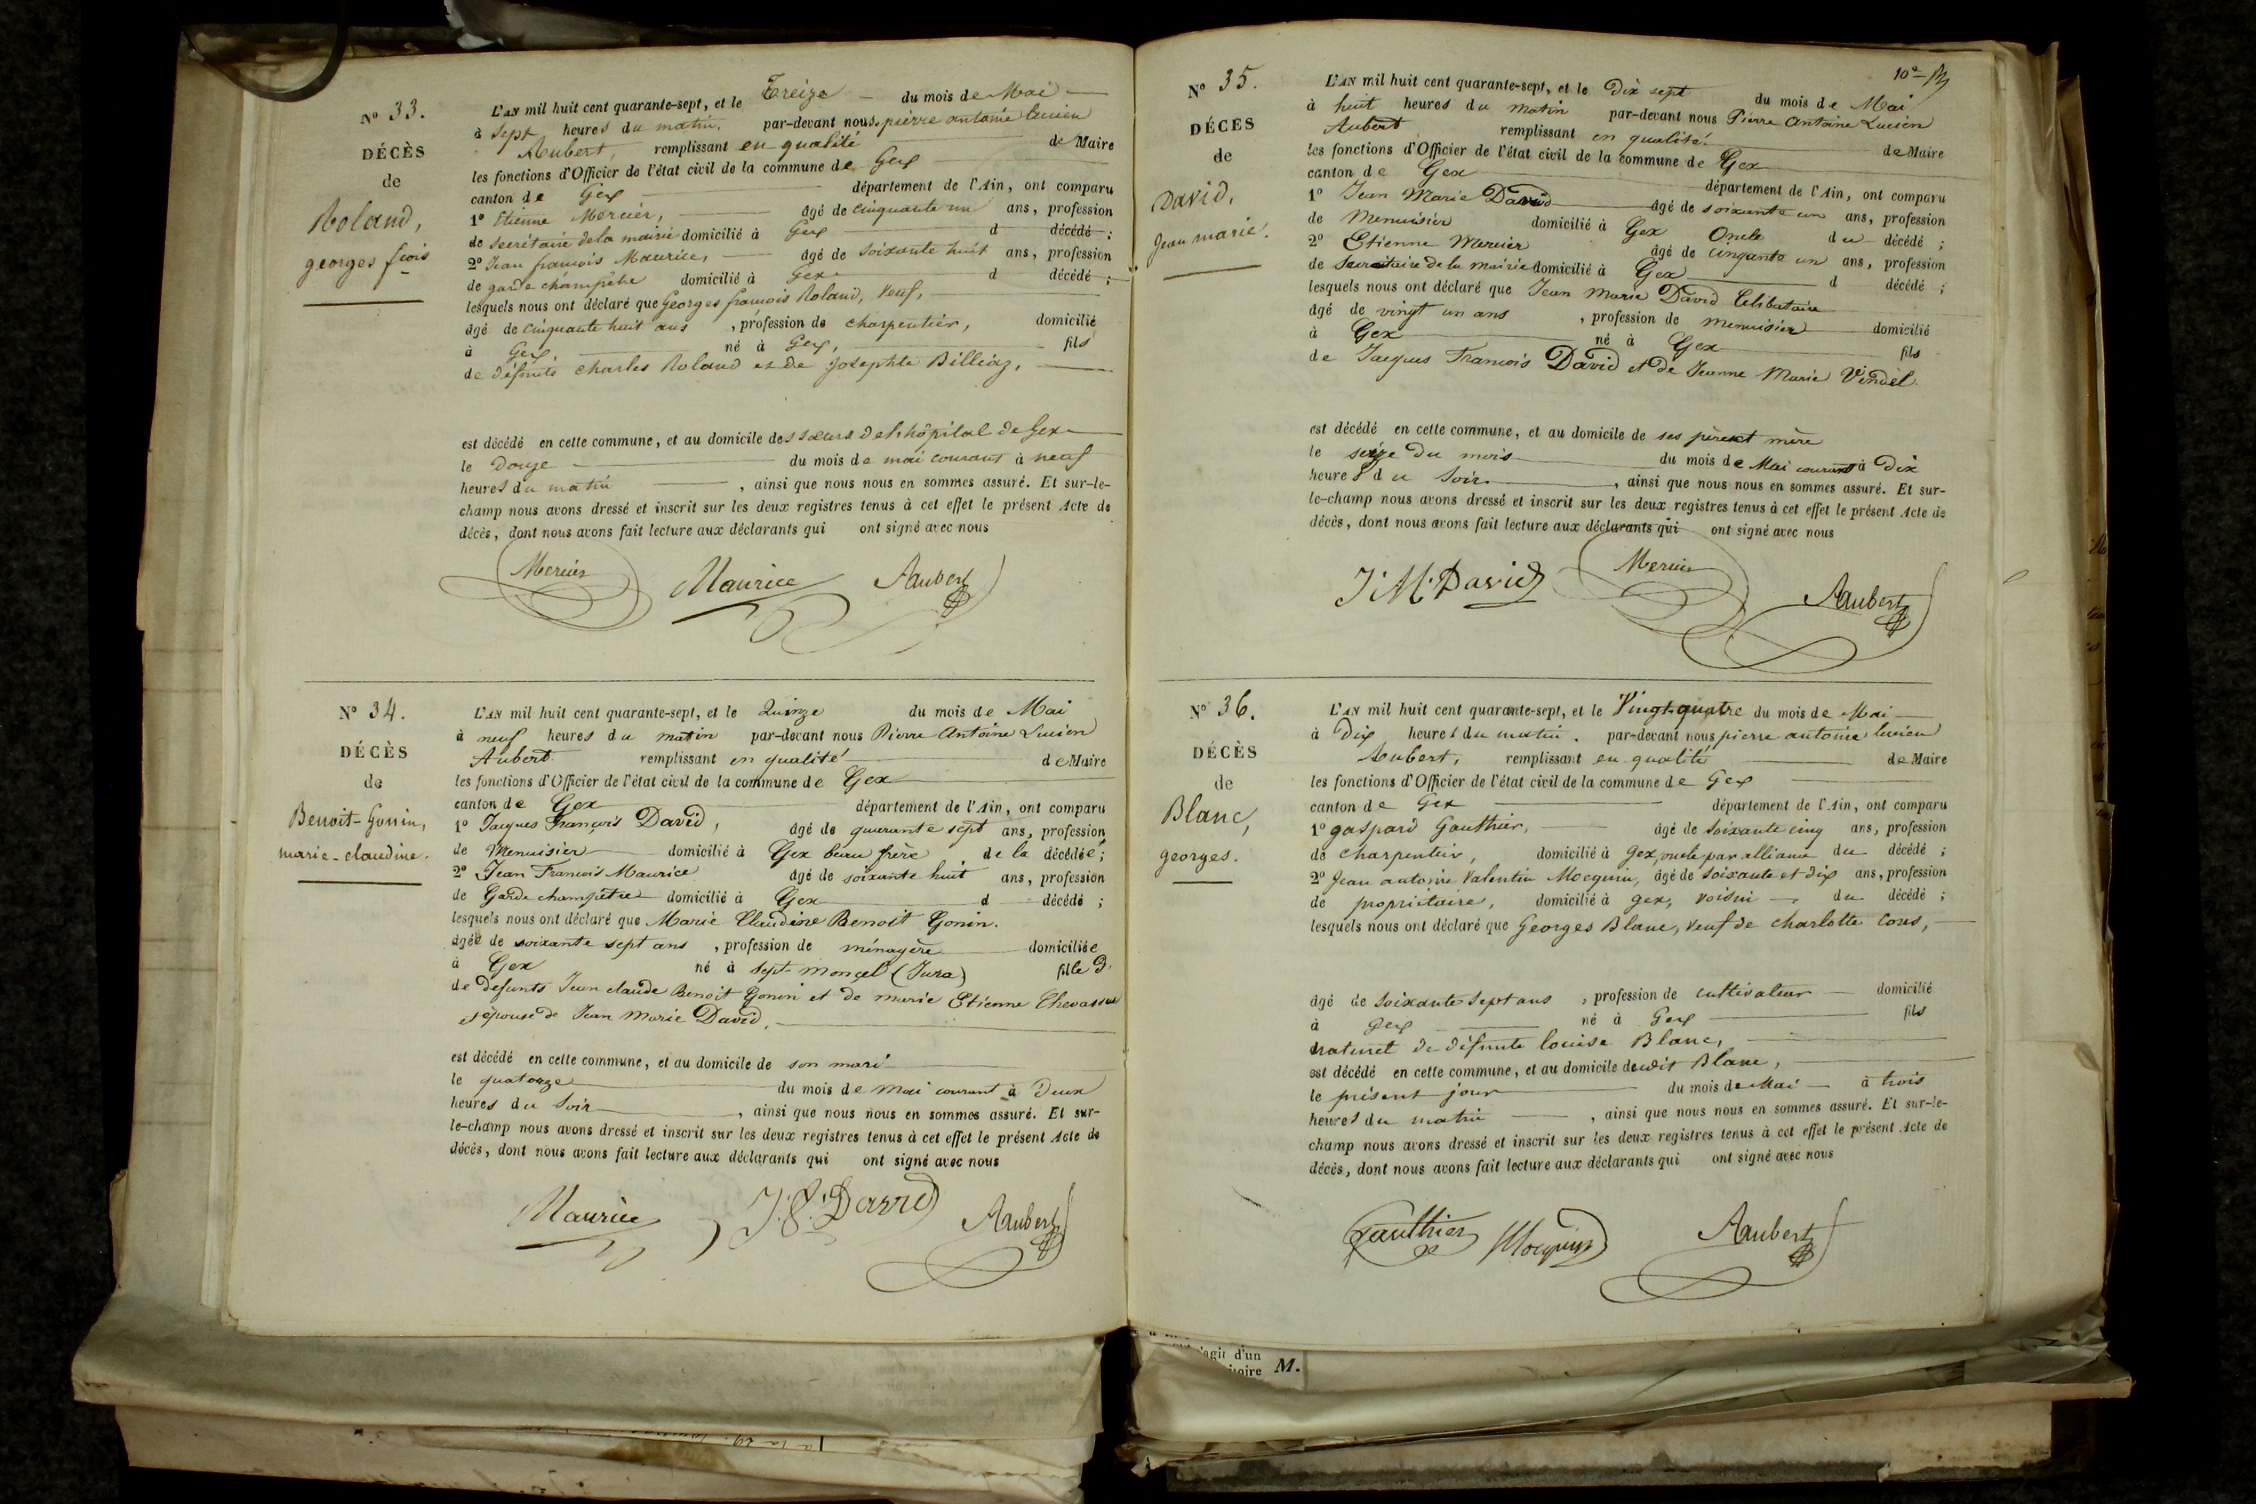 No 33.
DÉCÈS
de
Roland,
georges fçois
L'AN mil huit cent quarante-sept, et le Treize du mois de Mai
à sept heures du matin, par-devant nous pierre antoine lucien
Aubert, remplissant en qualité de Maire
les fonctions d'Officier de l'état civil de la commune de Gex
canton de Gex département de l'Ain, ont comparu
1o Etienne Mercier, âgé de cinquante un ans, profession
de secrétaire de la mairie domicilié à Gex d décédé ;
2o Jean françois Maurice, âgé de soixante huit ans, profession
de garde champêtre domicilié à Gex d décédé ;
lesquels nous ont déclaré que Georges françois Roland, veuf,
âgé de cinquante huit ans , profession de charpentier, domicilié
à Gex, né à Gex, fils
de défunts charles Roland et de Josephte Billiaz,
est décédé en cette commune, et au domicile des sœurs de l'hôpital de Gex
le Douze du mois de mai courant à neuf
heures du matin , ainsi que nous nous en sommes assuré. Et sur-le-
champ nous avons dressé et inscrit sur les deux registres tenus à cet effet le présent Acte de
décès, dont nous avons fait lecture aux déclarants qui ont signé avec nous
Mercier Maurice Aaubert
No 34.
DÉCÈS
de
Benoit-Gonin,
marie-claudine.
L'AN mil huit cent quarante-sept, et le Quinze du mois de Mai
à neuf heures du matin par-devant nous Pierre Antoine Lucien
Aubert remplissant en qualité de Maire
les fonctions d'Officier de l'état civil de la commune de Gex
canton de Gex département de l'Ain, ont comparu
1o Jacques François David, âgé de quarante sept ans, profession
de Menuisier domicilié à Gex beau frère de la décédée ;
2o Jean Francois Maurice âgé de soixante huit ans, profession
de Garde champêtre domicilié à Gex d décédé ;
lesquels nous ont déclaré que Marie Claudine Benoit Gonin.
âgée de soixante sept ans , profession de ménagère domiciliée
à Gex né à sept-monçel (Jura) fille D.
de defunts Jean claude Benoit Gonin et de marie Etienne Chevassus
et épouse de Jean Marie David.
est décédé en cette commune, et au domicile de son mari
le quatorze du mois de Mai courant à Deux
heures du Soir , ainsi que nous nous en sommes assuré. Et sur-
le-champ nous avons dressé et inscrit sur les deux registres tenus à cet effet le présent Acte de
décès, dont nous avons fait lecture aux déclarants qui ont signé avec nous
Maurice J.f. David Aaubert
10e
No 35.
DÉCÈS
de
David,
Jean marie.
L'AN mil huit cent quarante-sept, et le Dix sept du mois de Mai
à huit heures du matin par-devant nous Pierre Antoine Lucien
Aubert remplissant en qualité de Maire
les fonctions d'Officier de l'état civil de la commune de Gex
canton de Gex département de l'Ain, ont comparu
1o Jean Marie David âgé de soixante un ans, profession
de Menuisier domicilié à Gex Oncle du décédé ;
2o Etienne Mercier âgé de cinquante un ans, profession
de Secretaire de la mairie domicilié à Gex d décédé ;
lesquels nous ont déclaré que Jean Marie David Celibataire
âgé de vingt un ans , profession de menuisier domicilié
à Gex né à Gex fils
de Jacques Francois David et de Jeanne Marie Vindel.
est décédé en cette commune, et au domicile de ses père et mère
le seize du mois du mois de Mai courant à Dix
heures du Soir , ainsi que nous nous en sommes assuré. Et sur-
le-champ nous avons dressé et inscrit sur les deux registres tenus à cet effet le présent Acte de
décès, dont nous avons fait lecture aux déclarants qui ont signé avec nous
J. M. David Mercier Aaubert
No 36.
DÉCÈS
de
Blanc,
georges.
L'AN mil huit cent quarante-sept, et le Vingt-quatre du mois de Mai
à Dix heures du matin. par-devant nous pierre antoine lucien
Aubert, remplissant en qualité de Maire
les fonctions d'Officier de l'état civil de la commune de Gex
canton de Gex département de l'Ain, ont comparu
1o gaspard Gauthier, âgé de soixante cinq ans, profession
de charpentier, domicilié à gex, oncle par alliance du décédé ;
2o Jean antoine Valentin Mocquin, âgé de soixante et dix ans, profession
de propriétaire, domicilié à gex, voisin du décédé ;
lesquels nous ont déclaré que Georges Blanc, veuf de charlotte Cous,
âgé de soixante sept ans , profession de cultivateur domicilié
à Gex né à Gex fils
naturel de défunte louise Blanc,
est décédé en cette commune, et au domicile dudit Blanc,
le présent jour du mois de Mai à trois
heures du matin , ainsi que nous nous en sommes assuré. Et sur-le-
champ nous avons dressé et inscrit sur les deux registres tenus à cet effet le présent Acte de
décès, dont nous avons fait lecture aux déclarants qui ont signé avec nous
Gauthier Mocquin Aaubert
agit d'un
M.